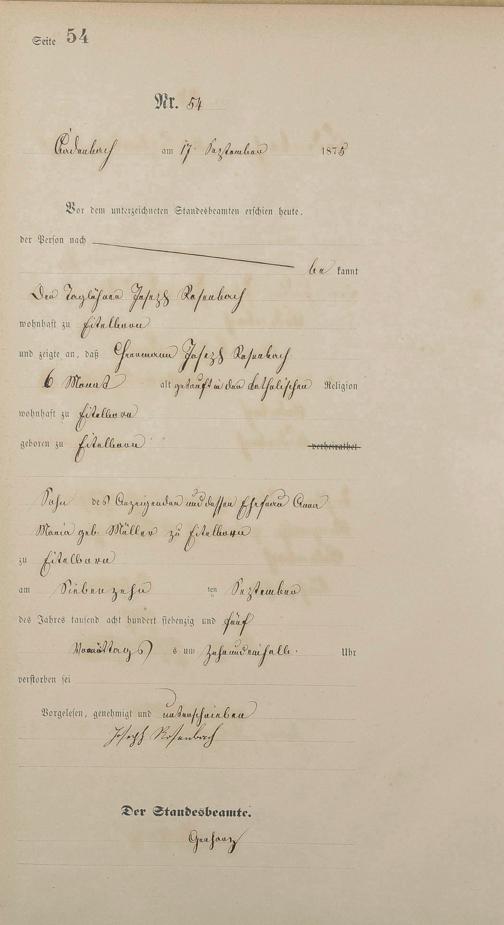 Seite 54
Nr. 54
am 17 September 1875
Vor dem unterzeichneten Standesbeamten erschien heute,
der Person nach
be kannt
Der Taglöhner Joseph Rosenbach
wohnhaft zu Eitelborn
und zeigte an, daß Hermann Joseph Rosenbach
6 Monat alt getauft in der katholischen Religion
wohnhaft zu Eitelborn
geboren zu Eitelborn verheirathet
Sohn des Anzeigenden und dessen Ehefrau Anna
Maria geb. Müller zu Eitelborn
zu Eitelborn
am Siebenzehn ten September
des Jahres tausend acht hundert siebenzig und fünf
Vormittag s um Uhr
verstorben sei
Vorgelesen, genehmigt und unterschrieben
Joseph Rosenbach
Der Standesbeamte.